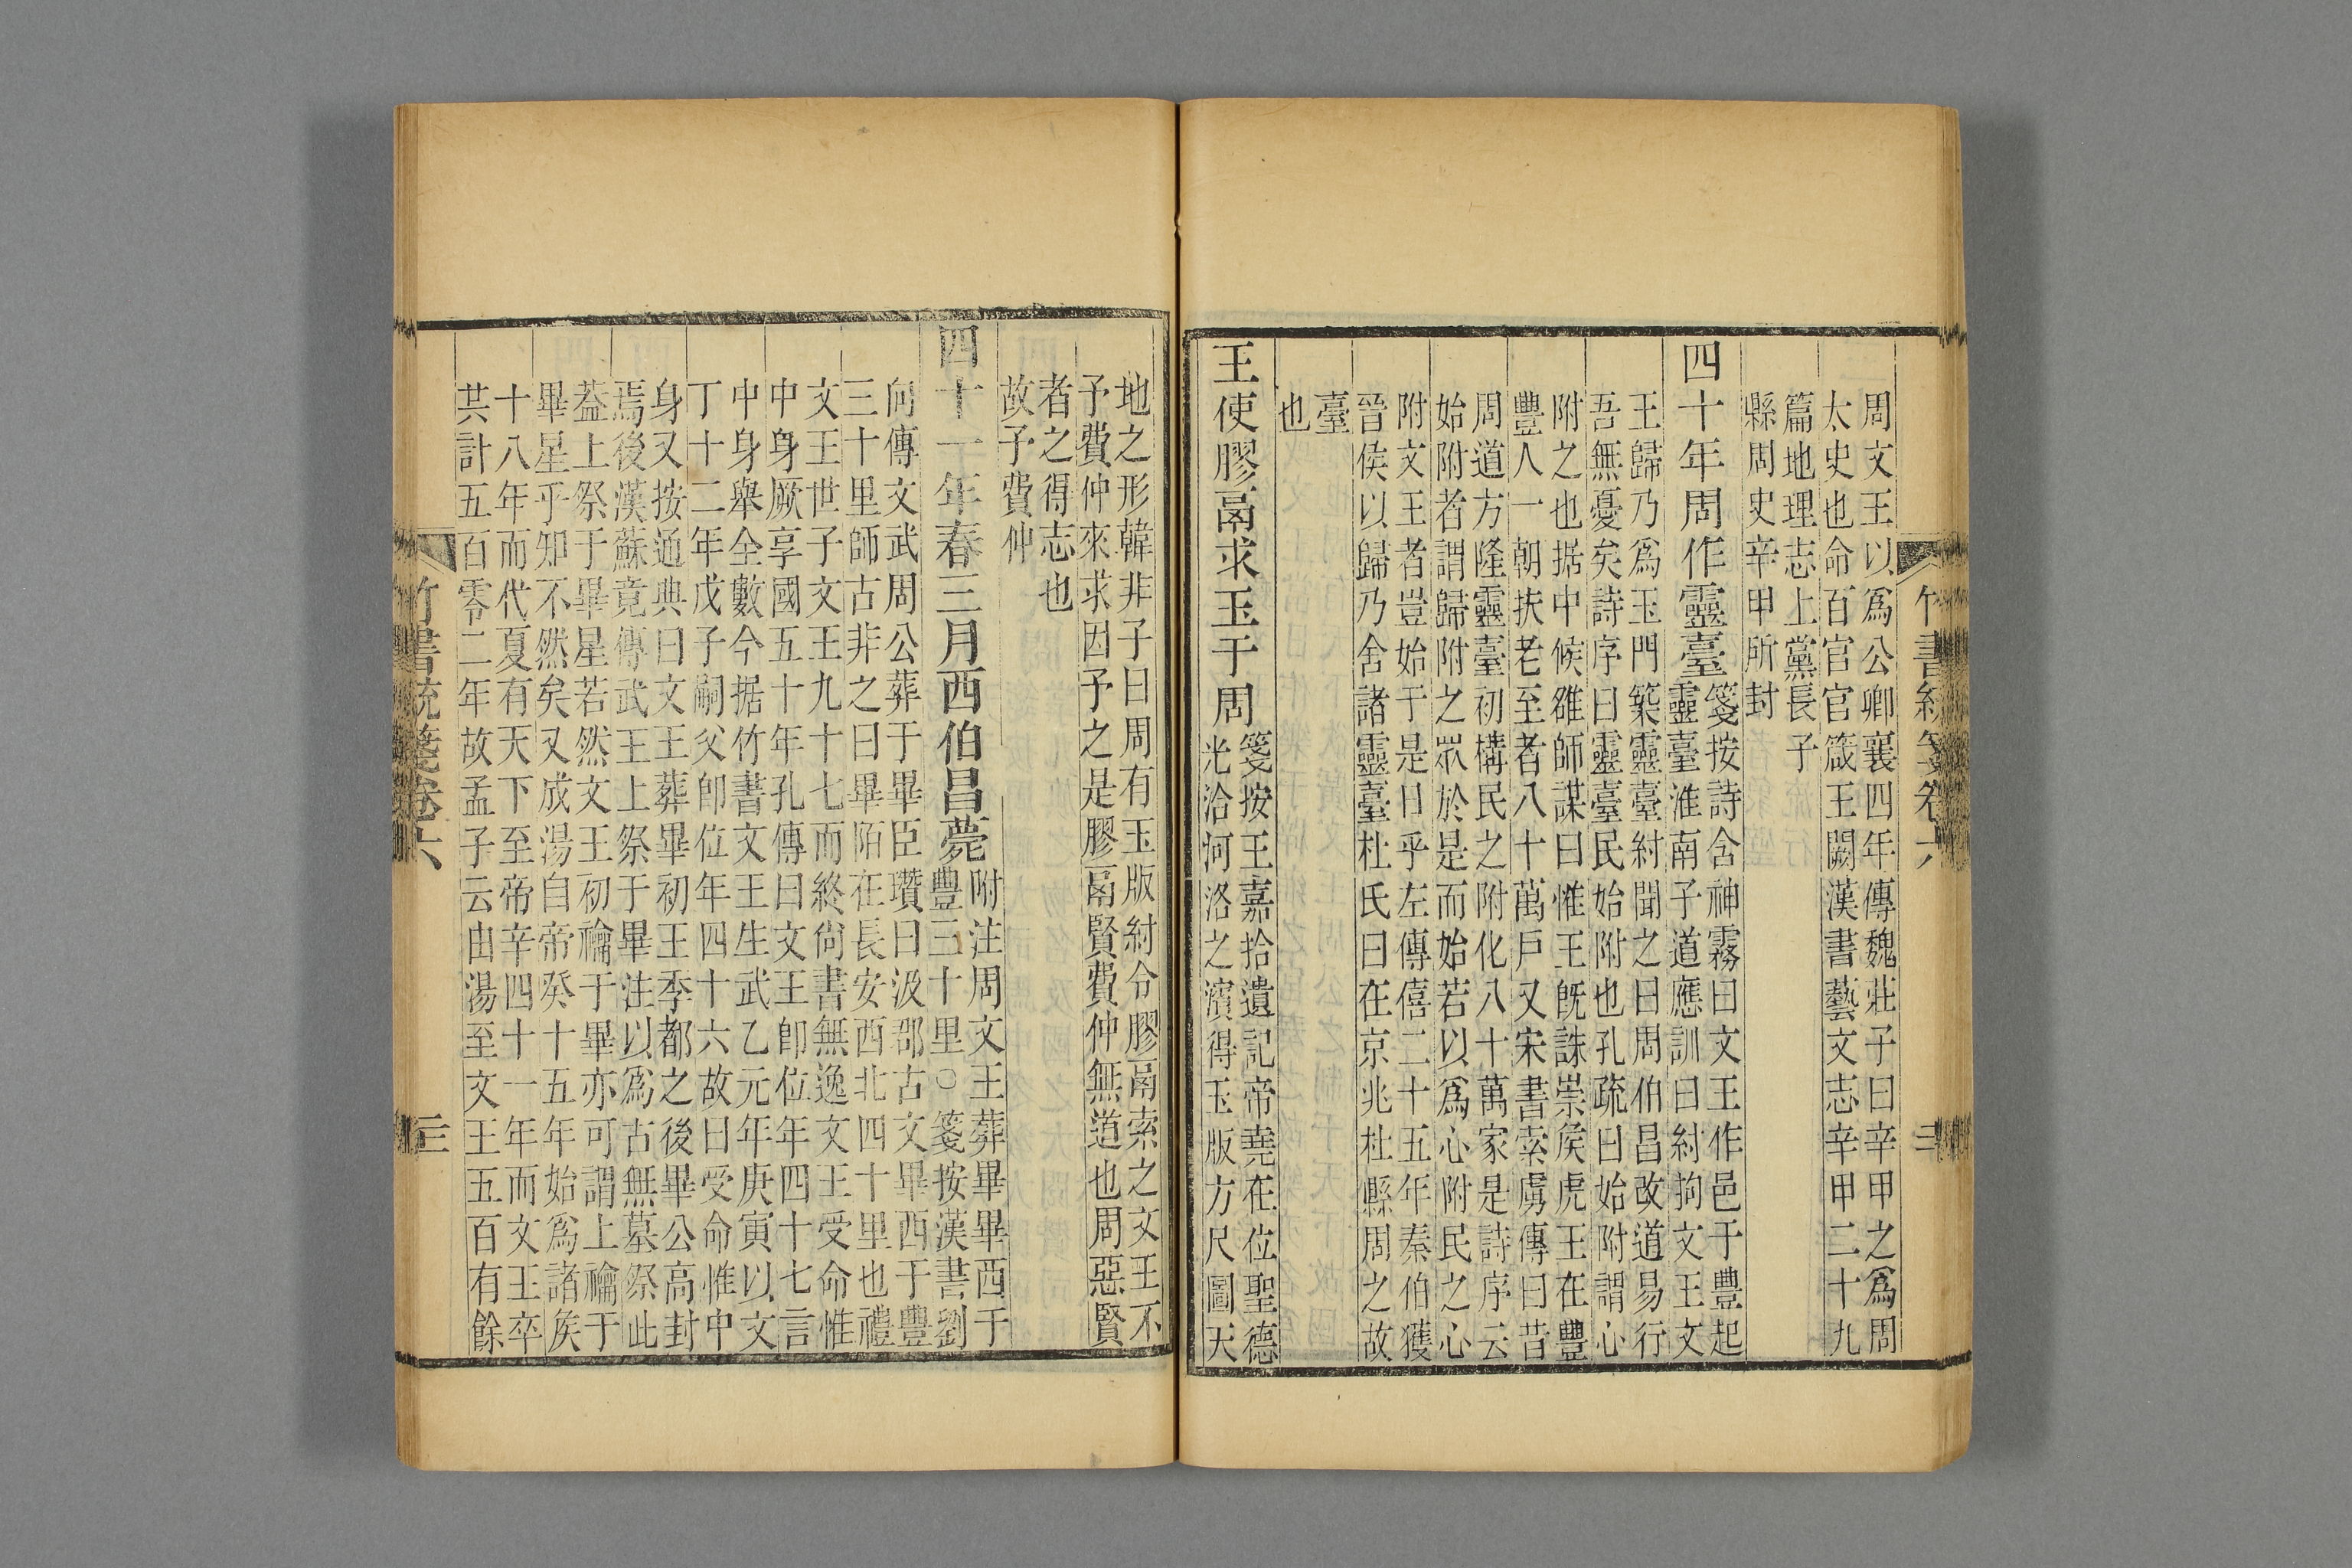 竹書統箋卷六
周文王以爲公卿襄四年傳魏莊子曰辛甲之爲周
太史也命百官官箴王闕漢書藝文志辛甲二十九
篇地理志上黨長子
縣周史辛甲所封
四十年周作靈臺
箋按詩含神霧曰文王作邑于豐起
靈臺淮南子道應訓曰紂拘文王文
王歸乃爲玉門築靈臺紂聞之曰周伯昌改道易行
吾無憂矣詩序曰靈臺民始附也孔疏曰始附謂心
附之也据中候雒師謀曰惟王旣誅崇侯虎王在豐
豐人一朝扶老至者八十萬戶又宋書索虜傳曰昔
周道方隆靈臺初構民之附化八十萬家是詩序云
始附者謂歸附之眾於是而始若以爲心附民之心
附文王者豈始于是日乎左傳僖二十五年秦伯獲
晉侯以歸乃舍諸靈臺杜氏曰在京兆杜縣周之故
臺
也
王使膠鬲求玉于周
箋按王嘉拾遺記帝堯在位聖德
光洽河洛之濱得玉版方尺圖天
地之形韓非子曰周有玉版紂令膠鬲索之文王不
予費仲來求因予之是膠鬲賢費仲無道也周惡賢
者之得志也
故予費仲
四十一年春三月西伯昌薨
附注周文王葬畢畢西于
豐三十里○箋按漢書劉
向傳文武周公葬于畢臣瓚曰汲郡古文畢西于豐
三十里師古非之曰畢陌在長安西北四十里也禮
文王世子文王九十七而終尙書無逸文王受命惟
中身厥享國五十年孔傳曰文王卽位年四十七言
中身舉全數今据竹書文王生武乙元年庚寅以文
丁十二年戊子嗣父卽位年四十六故曰受命惟中
身又按通典曰文王葬畢初王季都之後畢公高封
焉後漢蘇竟傳武王上祭于畢注以爲古無墓祭此
葢上祭于畢星若然文王初禴于畢亦可謂上禴于
畢星乎知不然矣又成湯自帝癸十五年始爲諸侯
十八年而代夏有天下至帝辛四十一年而文王卒
共計五百零二年故孟子云由湯至文王五百有餘
竹書統箋卷六
三